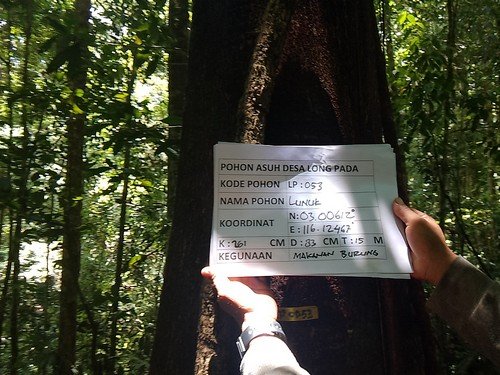 POHON ASUH DESA LONG PADA
KODE POHON LP : 053
NAMA POHON LUNUK
KOORDINAT N: 03.00612°
E : 116.12467°
K : 261 CM D : 83 CM T : 15 M
KEGUNAAN MAKANAN BURUNG
0053